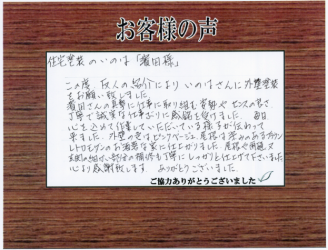 お客様の声
住宅塗装 のいのは「濱田様」
この度、友人の紹介によりいのはさんに外壁塗装
をお願い致しました。
濱田さんの真摯に仕事に取り組む姿勢や センスの良さ、
丁寧で誠実な仕事ぶりに感銘を受けました。毎日
心を込めて作業していただいている様子が伝わって
来ました。外壁の色はピンクベージュ、屋根は深みのあるブラウン
レトロモダンのお洒落な家に仕上がりました。屋根や雨樋、又
玄関の細かい部分の補修も丁寧に しっかりと仕上げて下さいました
心より感謝致します。ありがとうございました。
ご協力ありがとうございました